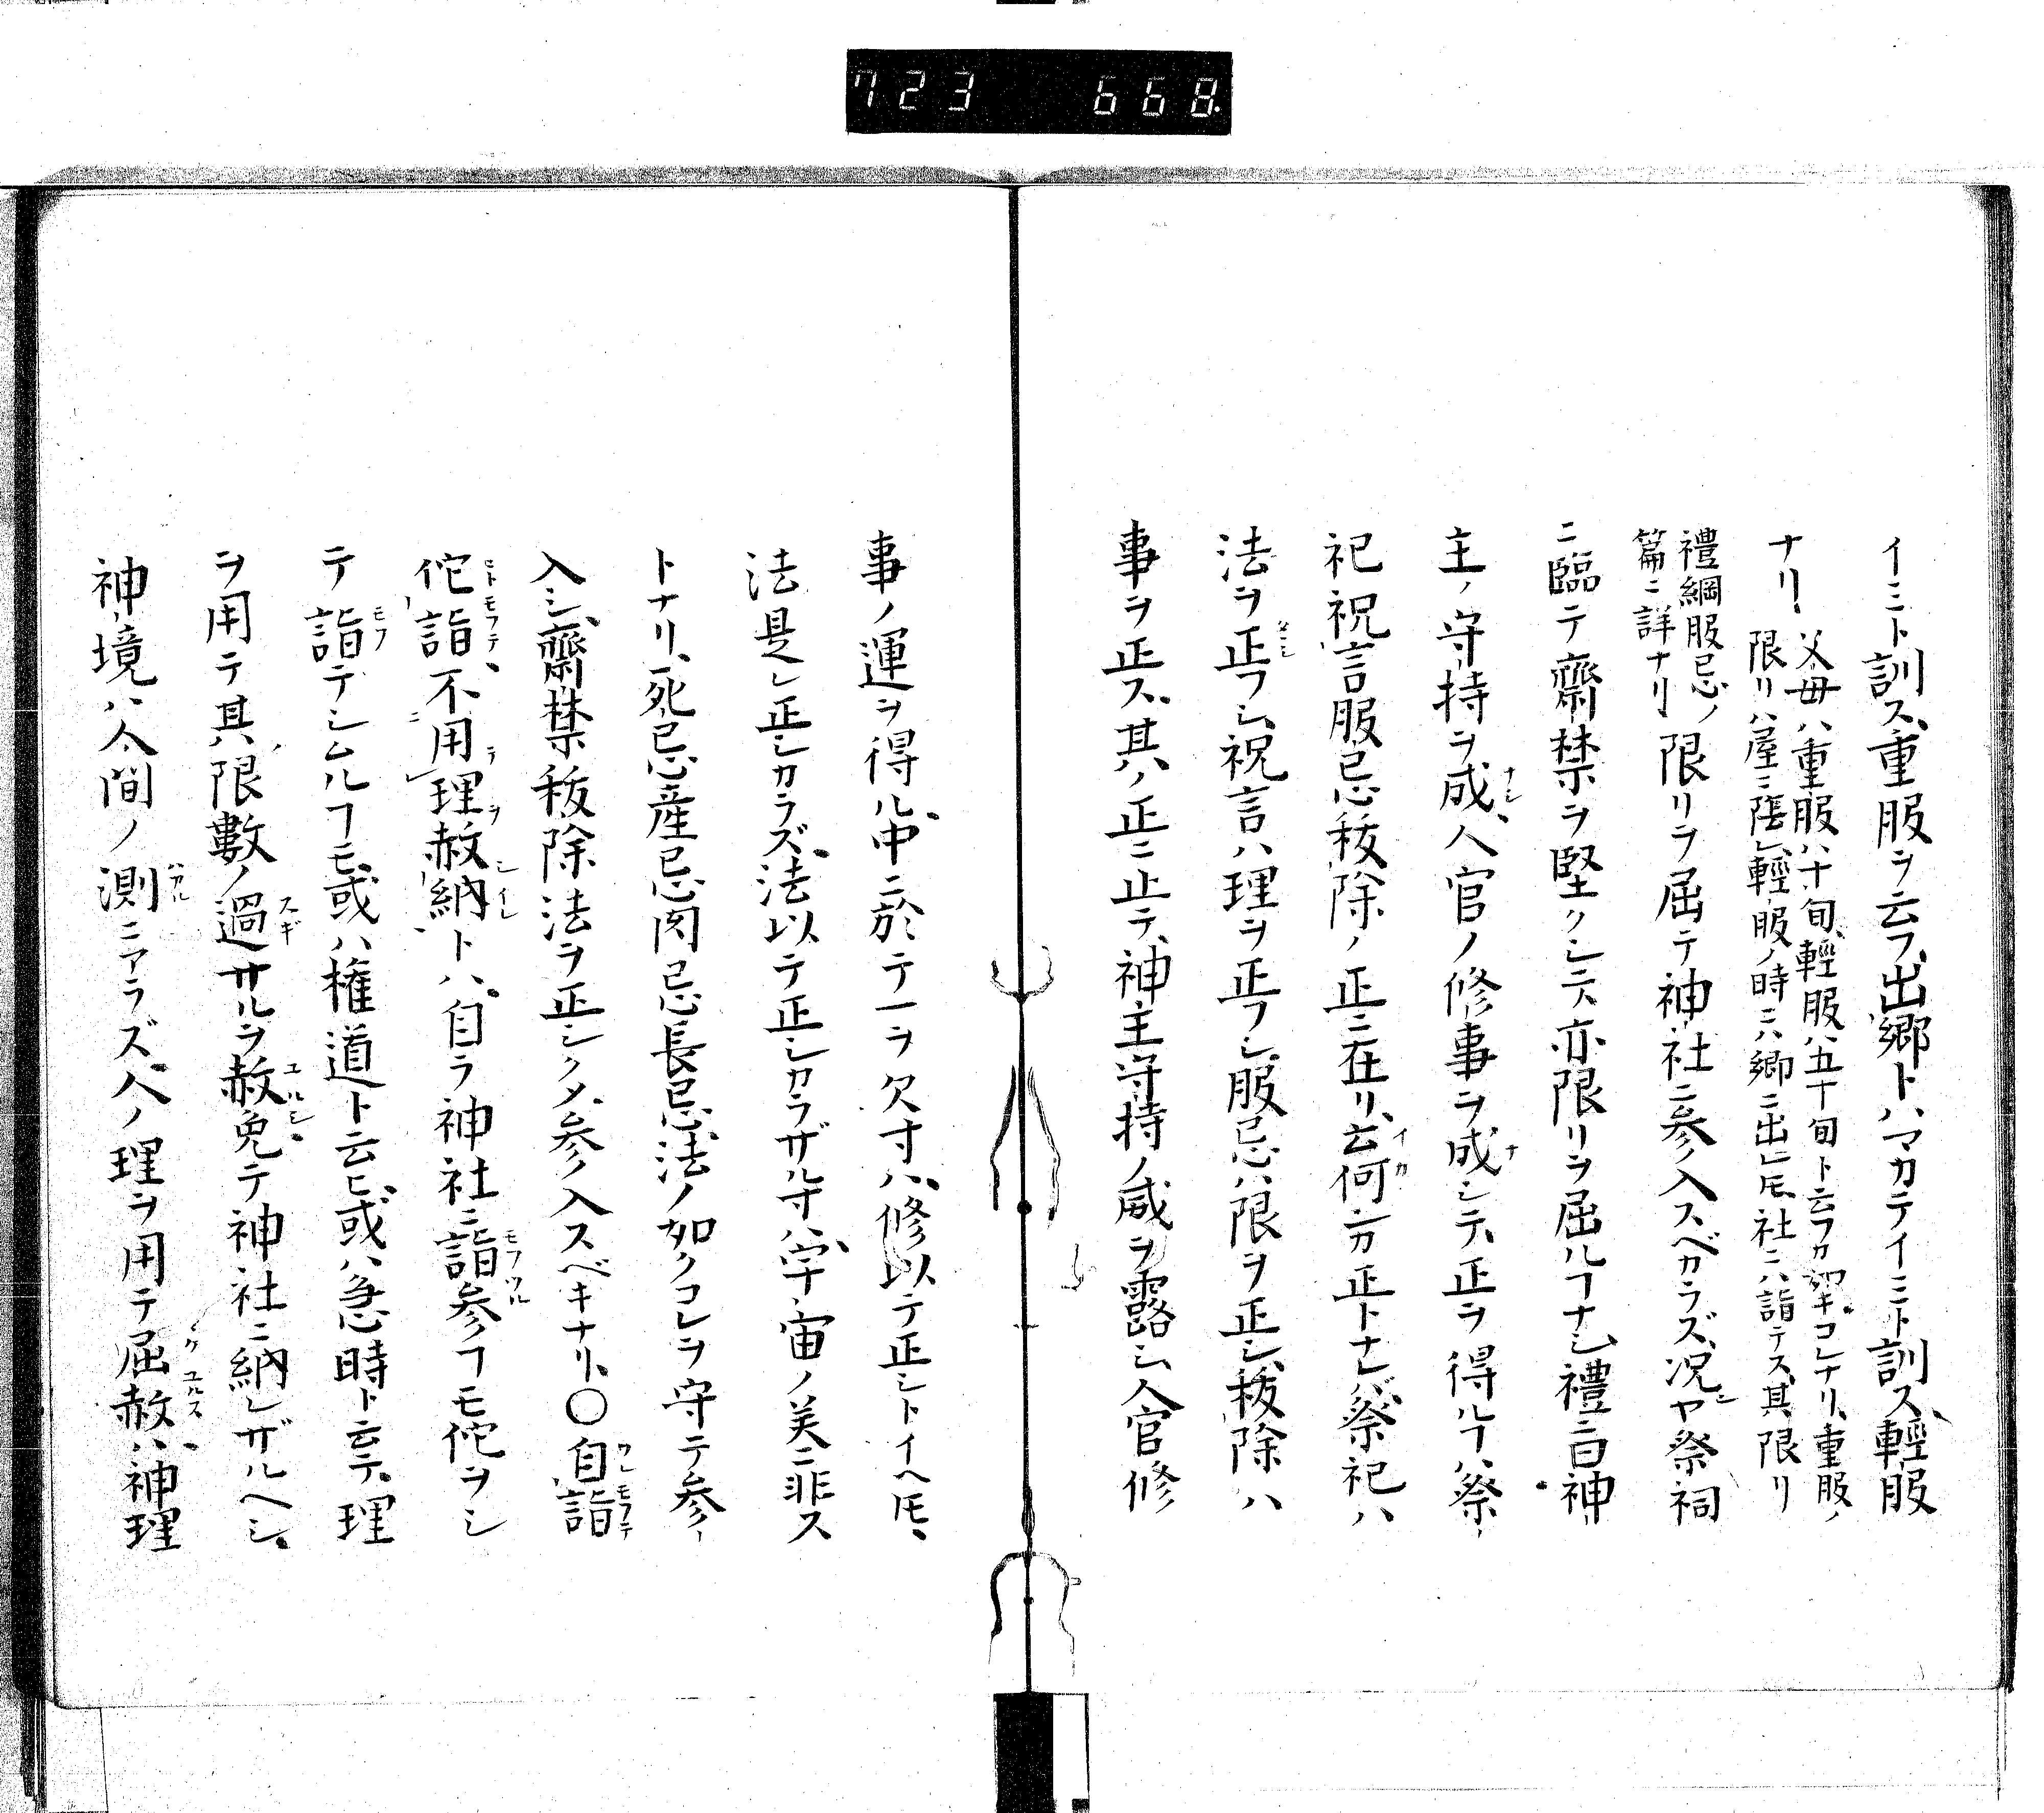 723 668.
イミト訓ス、重服ヲ云フ、出郷トハマカテイミト訓ス、輕服
ナリ、父母ハ重服ハ十旬、輕服ハ五十旬ト云フカ如キコレナリ、重服ノ
限リハ屋ニ蔭レ、輕服ノ時ニハ郷ニ出ㇾ𪜈、社ニハ詣テス、其限リ
禮綱服忌ノ
篇ニ詳ナリ
限リヲ屈テ神社ニ参入スベカラズ、况ヤ祭祠
ニ臨テ齋禁ヲ堅クシテ、亦限リヲ屈ルヿナシ、禮ニ曰神
主ノ守持ヲ成、人官ノ修事ヲ成シテ、正ヲ得ルヿハ、祭
祀祝言服忌秡除ノ正ニ在リ、云何カ正トナレバ、祭祀ハ
法ヲ正フシ、祝言ハ理ヲ正フシ、服忌ハ限ヲ正シ、秡除ハ
事ヲ正ス、其ノ正ニ止テ、神主守持ノ威ヲ露シ、人官修
事ノ運ヲ得ル、中ニ於テ一ヲ欠寸ハ、修以テ正シトイヘ𪜈、
法是レ正シカラズ、法以テ正シカラザル寸ハ、宇宙ノ美ニ非ス
トナリ、死忌産忌肉忌長忌、法ノ如クコレヲ守テ参
入シ、齋禁秡除法ヲ正シクメ、参入スベキナリ、〇自詣
佗詣不用理赦納トハ、自ラ神社ニ詣参フモ佗ヲシ
テ詣テシムルヿモ、或ハ權道ト云ヒ、或ハ急時ト云テ、理
ヲ用テ其限數ノ過サルヲ赦免テ神社ニ納レザルヘシ、
神境ハ人間ノ測ニアラズ、人ノ理ヲ用テ屈赦ハ、神理